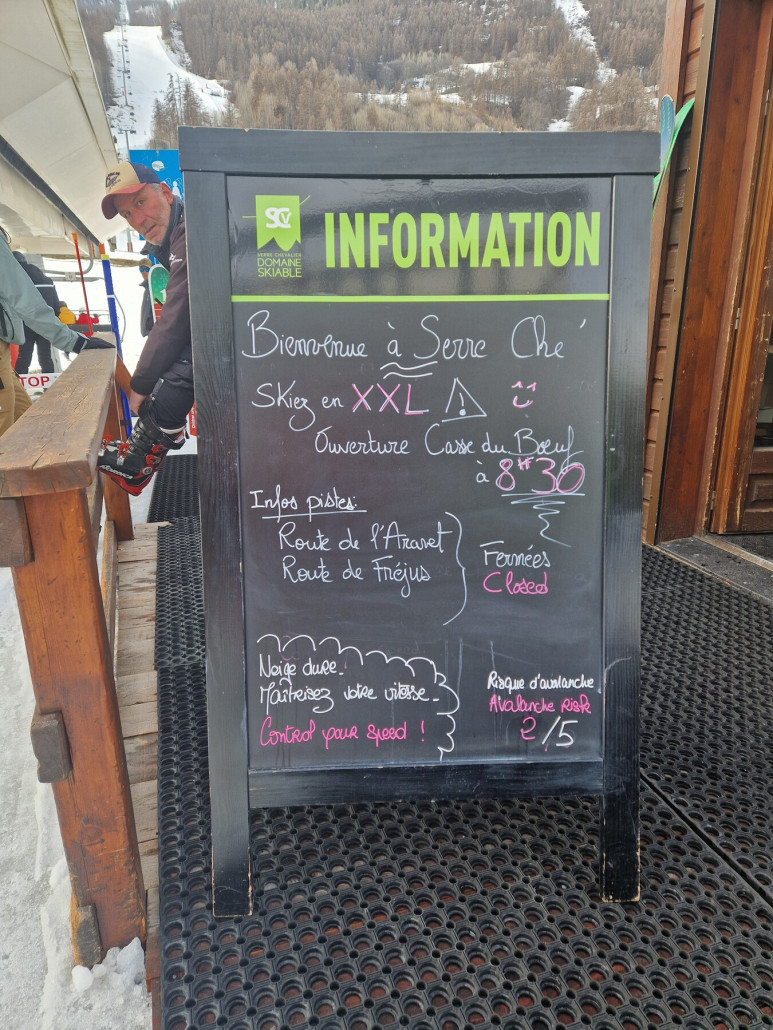 SCV
SERRE CHEVALIER
DOMAINE
SKIABLE
INFORMATION
Bienvenue à Serre Che'
Skiez en XXL !
Ouverture Casse du Bœuf
à 8H30
Infos pistes:
Route de l'Aravet
Route de Fréjus
Fermées
Closed
Neige dure.
Maîtrisez votre vitesse.
Control your speed !
Risque d'avalanche
Avalanche risk
2/5
TOP